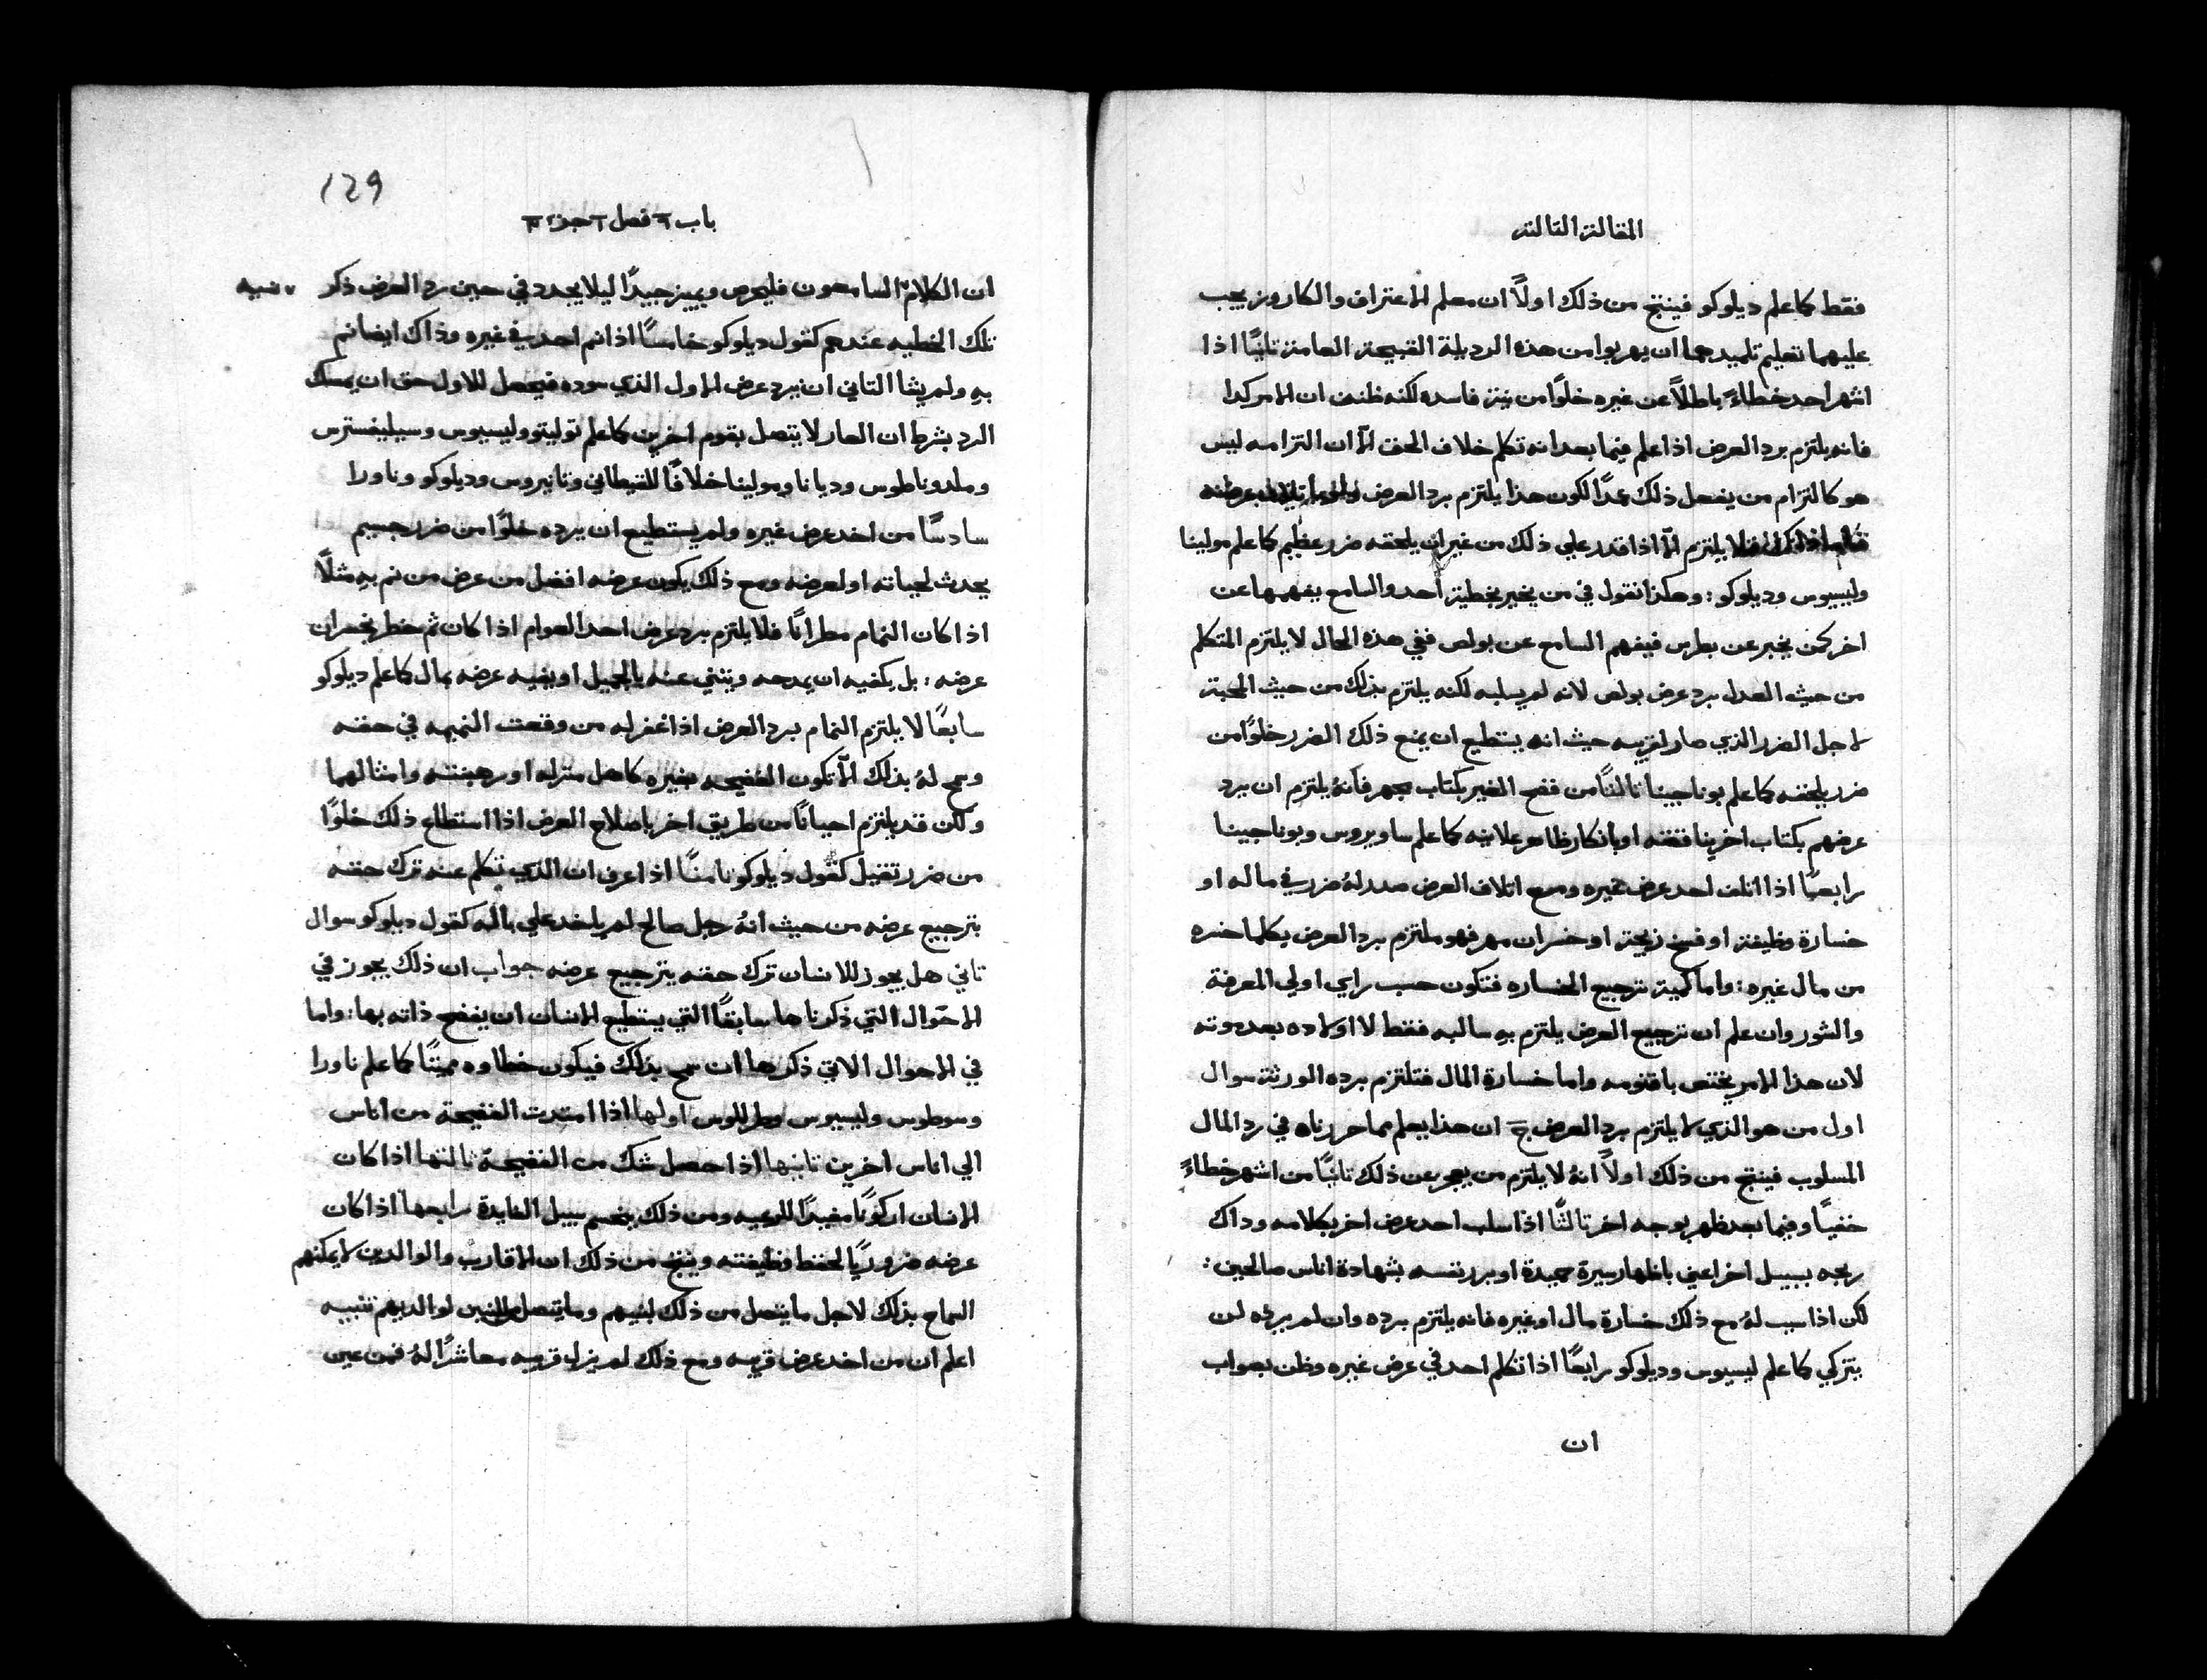 المقالة التالتة
فقط كما علم ديلوكو فينتج من ذلك اولاً ان معلم الاعتراف والكاروز يجب
عليهما تعليم تلميدهما ان يهربوا من هذه الرديلة القبيحة العامة تانيًا اذا
اشهر احد خطاءً باطلاً عن غيره خلوًا من نية فاسده لكنه ظن ان الامر كدا
فانه يلتزم برد العرض اذا علم فيما بعد انه تكلم خلاف الحق الّا ان التزامه ليس
هو كالتزام من يفعل ذلك عمدًا لكون هذا يلتزم برد العرض
فلا يلتزم الّا اذا قدر علي ذلك من غير ان يلحقه ضرر عظيم كما علم مولينا
وليسيوس وديلوكو : وهكذا نقول في من يخبر بخطية احد والسامع يفهمها عن
اخر كمن يخبر عن بطرس فيفهم السامع عن بولص ففي هذه الحال لا يلتزم المتكلم
من حيث العدل برد عرض بولص لانه لم يسلبه لكنه يلتزم بذلك من حيث المحبة
لاجل الضرر الذي صار لقريبه حيث انه يستطيع ان يمنع ذلك الضرر خلوًا من
ضرر يلحقه كما علم بوناجينا تالتًا من فضح الغير بكتاب يجهر فانهُ يلتزم ان يرد
عرضهم بكتاب اخر يناقضه او بانكار ظاهر علانيه كما علم ساويروس وبوناجينا
رابعًا اذا اتلف احد عرض غيره ومع اتلاف العرض صدر لهُ ضرر في ماله او
خسارة وظيفة او فسخ زيجة او خسران مهر فهو ملتزم برد العرض بكلما خسره
من مال غيره : واما كمية ترجيع الخساره فتكون حسب راي اولي المعرفة
والشور وان علم ان ترجيع العرض يلتزم بهِ سالبه فقط لا اولاده بعد موته
لان هذا الامر يختص باقنومه واما خسارة المال فتلتزم برده الورثة سوال
اول من هو الذي لا يلتزم برد العرض ج ان هذا يعلم مما حررناه في رد المال
المسلوب فينتج من ذلك اولاً انهُ لا يلتزم من يعجز عن ذلك تانيًا من اشهر خطاءً
خفيًا وفيما بعد ظهر بوجه اخر تالتًا اذا سلب احد عرض اخر بكلامه وداك
ربحه بسبيل اخر اعني باظهار سيرة حميدة او برر نفسه بشهادة اناس صالحين :
لكن اذا سبب لهُ مع ذلك خسارة مال او غيره فانه يلتزم برده وان لم يرده لن
يتزكي كما علم ليسيوس وديلوكو رابعًا اذا تكلم احد في عرض غيره وظن بصواب
ان
129
باب ٦ فصل ٢ جزء ٣
ان الكلام السامعون فليحرص ويميز جيدًا ليلا يجدد في حين رد العرض ذكر
تنبيه
تلك الخطيه عندهم كقول ديلوكو خامسًا اذا نم احد في غيره وذاك ايضا نم
بهِ ولم يشا التاني ان يرد عرض الاول الذي سوده فيحصل للاول حق ان يمسك
الرد بشرط ان العار لا يتصل بقوم اخرين كما علم توليتو وليسيوس وسيليفسترس
وملدوناطوس وديانا ومولينا خلافًا للقيطاني وتانيروس وديلوكو وناورا
سادسًا من اخد عرض غيره ولم يستطيع ان يرده خلوًا من ضرر جسيم
يحدث لحياته او لعرضه ومع ذلك يكون عرضه افضل من عرض من نم بهِ مثلاً
اذا كان النمام مطرانًا فلا يلتزم برد عرض احد العوام اذا كان ثم خطر بخسران
عرضه : بل يكفيه ان يمدحه ويثني عنه بالجميل او يفيه عرضه بمال كما علم ديلوكو
سابعًا لا يلتزم النمام برد العرض اذا غفر له من وقعت النميمه في حقه
وسمح لهُ بذلك الّا تكون الفضيحه بغيره كاهل منزله او رهبنته وامثالهما
ولكن قد يلتزم احيانًا من طريق اخر باصلاح العرض اذا استطاع ذلك خلوًا
من ضرر تقيل كقول ديلوكو تامنًا اذا عرف ان الذي تكلم عنه ترك حقه
بترجيع عرضه من حيث انهُ رجل صالح لم ياخد علي باله كقول ديلوكو سوال
تاني هل يجوز للانسان ترك حقه بترجيع عرضه جواب ان ذلك يجوز في
الاحوال التي ذكرناها سابقًا التي يستطيع الانسان ان يفضح ذاته بها : واما
في الاحوال الاتي ذكرها ان سمح بذلك فيكون خطاوه مميتًا كما علم ناورا
وسوطوس وليسيوس وطرللوس اولها اذا امتدت الفضيحة من اناس
الي اناس اخرين تانيها اذا حصل شك من الفضيحة تالتها اذا كان
الانسان اركونًا مفيدًا للرعيه ومن ذلك ينحسم سبيل الفايدة رابعها اذا كان
عرضه ضروريًا لحفظ وظيفته وينتج من ذلك ان الاقارب والوالدين لا يمكنهم
السماح بذلك لاجل ما يتصل من ذلك لبنيهم وما يتصل من البنين لوالديهم تنبيه
اعلم ان من اخد عرض قريبه ومع ذلك لم يزل قريبه معاشرًا لهُ فمن عين